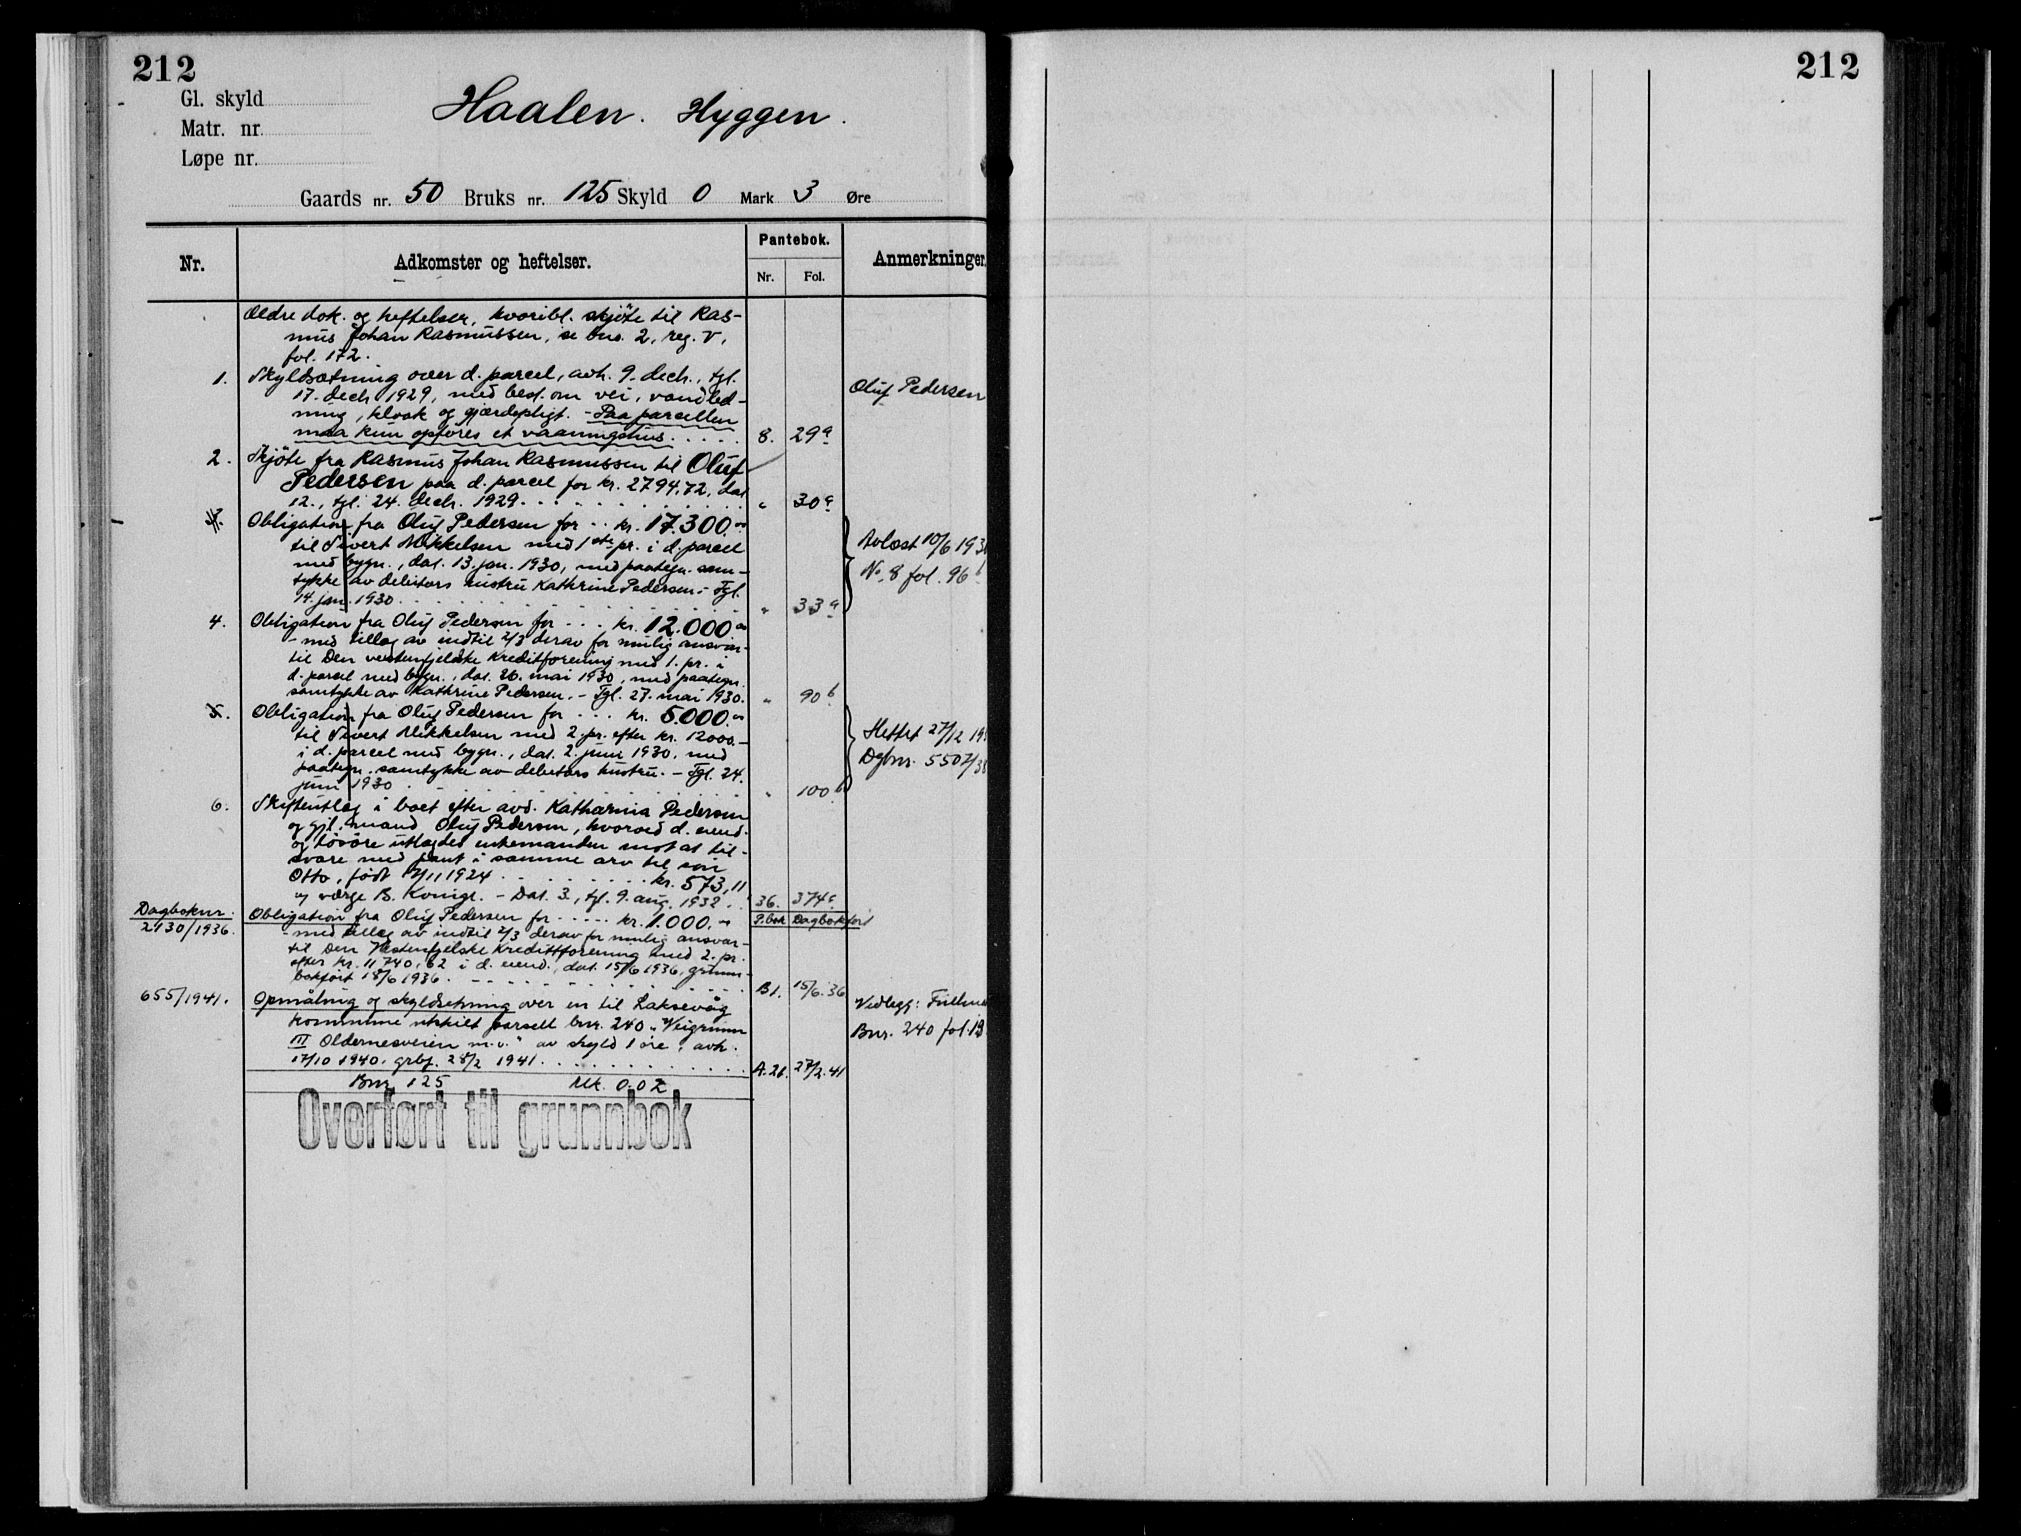 212
Gl. skyld
Haalen. Hyggen.
Matr. nr.
Løpe nr.
Gaards nr. 50 Bruks nr. 125 Skyld 0 Mark 3 Øre
Nr. Adkomster og heftelser. Pantebok. Anmerkninger.
Nr. Fol.
Ældre dok. og heftelser, hvoribl. skjøte til Ras-
mus Johan Rasmussen, se bno. 2, reg. V,
fol. 172.
1. Skyldsætning over d. parcel, avh. 9. decb., tgl.
17. decb. 1929, med best. om vei, vandled-
Oluf Pedersen
ning, kloak og gjærdepligt. - Paa parcellen
maa kun opføres et vaaningshus. . . . . 8. 29a
2. Skjöte fra Rasmus Johan Rasmussen til Oluf
Pedersen paa d. parcel for kr. 2794,72, dat.
12., tgl. 24. decb. 1929. . . . . . . . . . " 30a
3. Obligation fra Oluf Pedersen for .. kr. 17.300.00
til Sivert Mikkelsen med 1ste pr. i d. parcel
Avlæst 10/6 193
med bygn., dat. 13. jan. 1930, med paategn. sam-
No 8 fol. 96b
tykke av debitors hustru Kathrine Pedersen. - Tgl.
14. jan. 1930. . . . . . . . . . " 33a
4. Obligation fra Oluf Pedersen for . . . kr. 12.000.00
- med tillæg av indtil 2/3 derav for mulig ansvar-
til Den vestenfjelske Kreditforening med 1. pr. i
d. parcel med bygn., dat. 26. mai 1930, med paategn.
samtykke av Kathrine Pedersen. - Tgl. 27. mai 1930. " 90b
5. Obligation fra Oluf Pedersen for . . . kr. 5.000.00
til Sivert Mikkelsen med 2. pr. efter kr. 12000.-
Slettet 27/12 19
i d. parcel med bygn., dat. 2. juni 1930, med
Dgbnr. 5507/38
paategn. samtykke av debitors hustru. - Tgl. 24.
juni 1930 . . . . . . . . . . " 100b
6. Skifteutlæg i boet efter avd. Katharina Pedersen
og gjl. mand Oluf Pedersen, hvorved d. eiend.
og lösöre utlagdes enkemanden mot at til-
svare med pant i samme arv til sön
Otto, født 7/11 1924 . . . . . . . . . kr. 573,11
og værge B. Konigl. - Dat. 3., tgl. 9. aug. 1932. . 36. 374a
Dagboknr. Obligation fra Oluf Pedersen for . . . . . kr. 1.000.00 P.bok Dagbokført
2130/1936. - med tillæg av indtil 2/3 derav for mulig ansvar-
til Den Vestenfjelske Kredittforening med 2. pr.
efter kr. 11740,62 i d. eiend., dat. 15/6 1936, grunn-
bokført 18/6 1936. . . . . . . . . . B1. 15/6.36
655/1941. Opmåling og skyldsetning over en til Laksevåg
Vedlegg:
kommune utskilt parsell bnr. 240 "Veigrunn
Bnr. 240 fol.
III Oldernesveien m.v." av skyld 1 øre, avh.
17/10 1940, grbf. 28/2 1941. . . . . . . . . A.21. 27/2.41
Bnr 125 Mk. 0.02
Overført til grunnbok
212